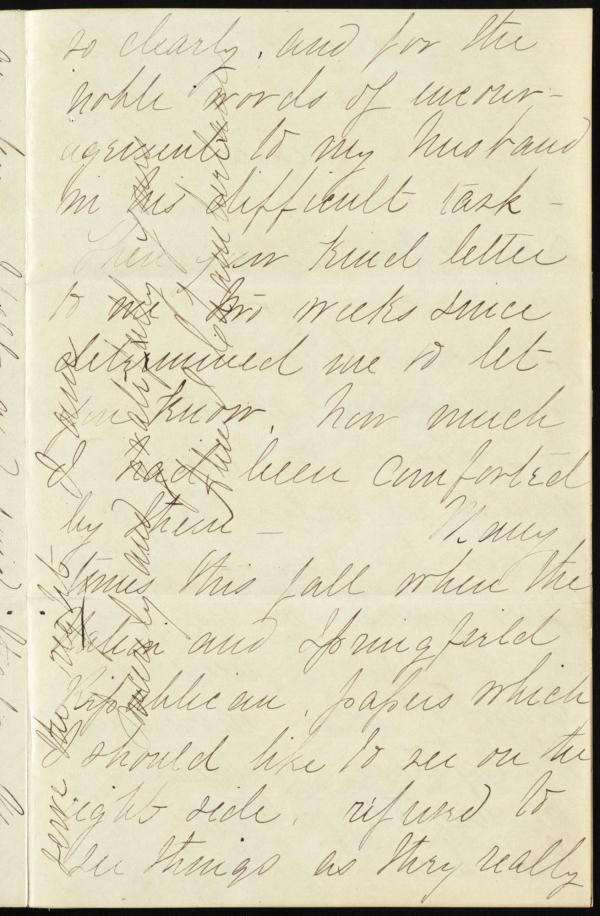 so clearly, and for the
noble words of encour-
agement to my husband
in his difficult task -
Then your kind letter
to me two weeks since
determined me to let
you know, how much
I had been comforted
by them - Many
times this fall when the
Nation and Springfield
Republican, papers which
I should like to see on the
right side, refused to
see things as they really
serve the right I am
truly and gratefully yours